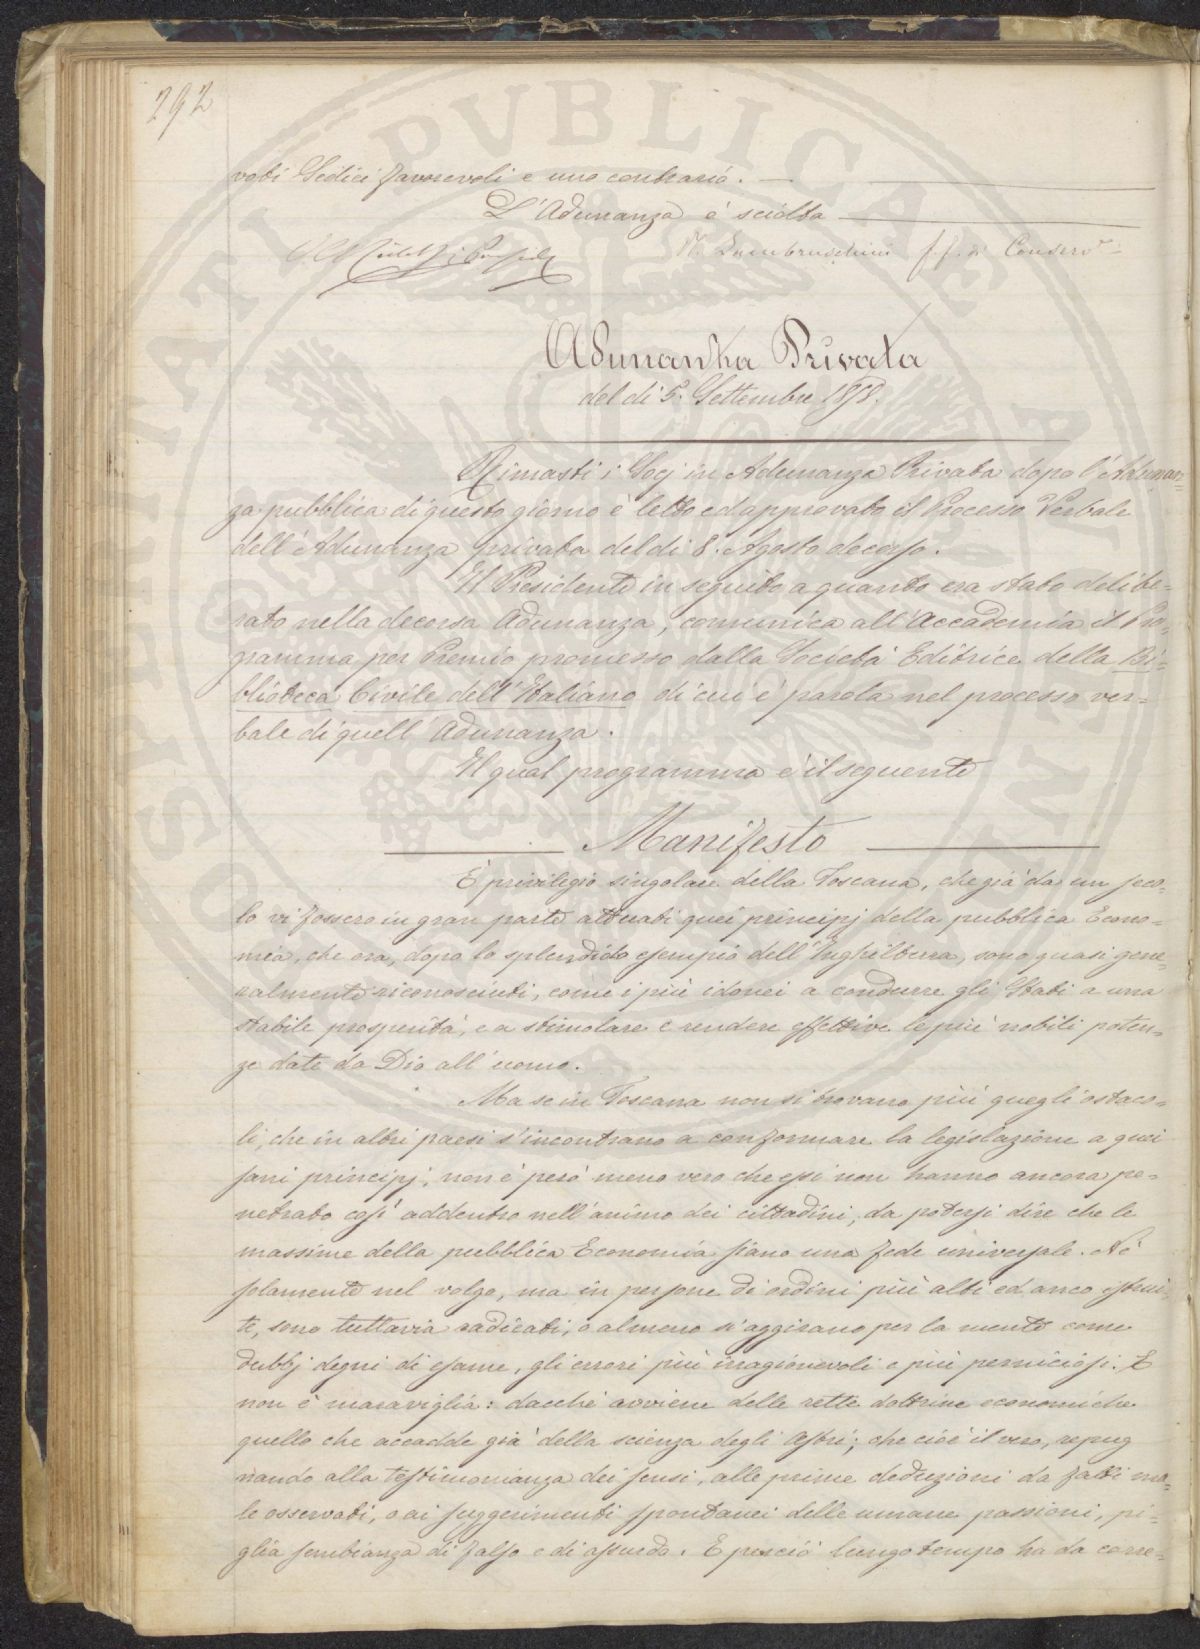 292
voti Sedici favorevoli e uno contrario. —
L'Adunanza è sciolta
R. Lambruschini f.f. di Conserv.e
Adunanza Privata
del dì 5. Settembre 1858.
Rimasti i Socj in Adunanza Privata dopo l'Adunan=
za pubblica di questo giorno è letto ed approvato il Processo Verbale
dell'Adunanza privata del dì 8. Agosto decorso.
Il Presidente in seguito a quanto era stato delibe=
rato nella decorsa Adunanza, comunica all'Accademia il Pro=
gramma per Premio promesso dalla Società Editrice della Bi=
blioteca Civile dell'Italiano di cui è parola nel processo ver=
bale di quell'Adunanza.
Il qual programma è il seguente
Manifesto
È privilegio singolare della Toscana, che già da un seco=
lo vi fossero in gran parte attuati quei principj della pubblica Econo=
mia, che ora, dopo lo splendido esempio dell'Inghilterra, sono quasi gene=
ralmente riconosciuti, come i più idonei a condurre gli Stati a una
stabile prosperità, e a stimolare e rendere effettive le più nobili poten=
ze date da Dio all'uomo.
Ma se in Toscana non si trovano più quegli ostaco=
li, che in altri paesi s'incontrano a conformare la legislazione a quei
sani principj, non è però meno vero che essi non hanno ancora pe=
netrato così addentro nell'animo dei cittadini, da potersi dire che le
massime della pubblica Economia siano una fede universale. Nè
solamente nel volgo, ma in persone di ordini più alti ed anco istrui=
te, sono tuttavia radicati, o almeno s'aggirano per la mente come
dubbj degni di esame, gli errori più irragionevoli e più perniciosi. E
non è maraviglia: dacchè avviene delle rette dottrine economiche
quello che accadde già della scienza degli Astri; che cioè il vero, repug
nando alla testimonianza dei sensi, alle prime deduzioni da fatti ma=
le osservati, o ai suggerimenti spontanei delle umane passioni, pi=
glia sembianza di falso e di assurdo. E perciò lungo tempo ha da corre=